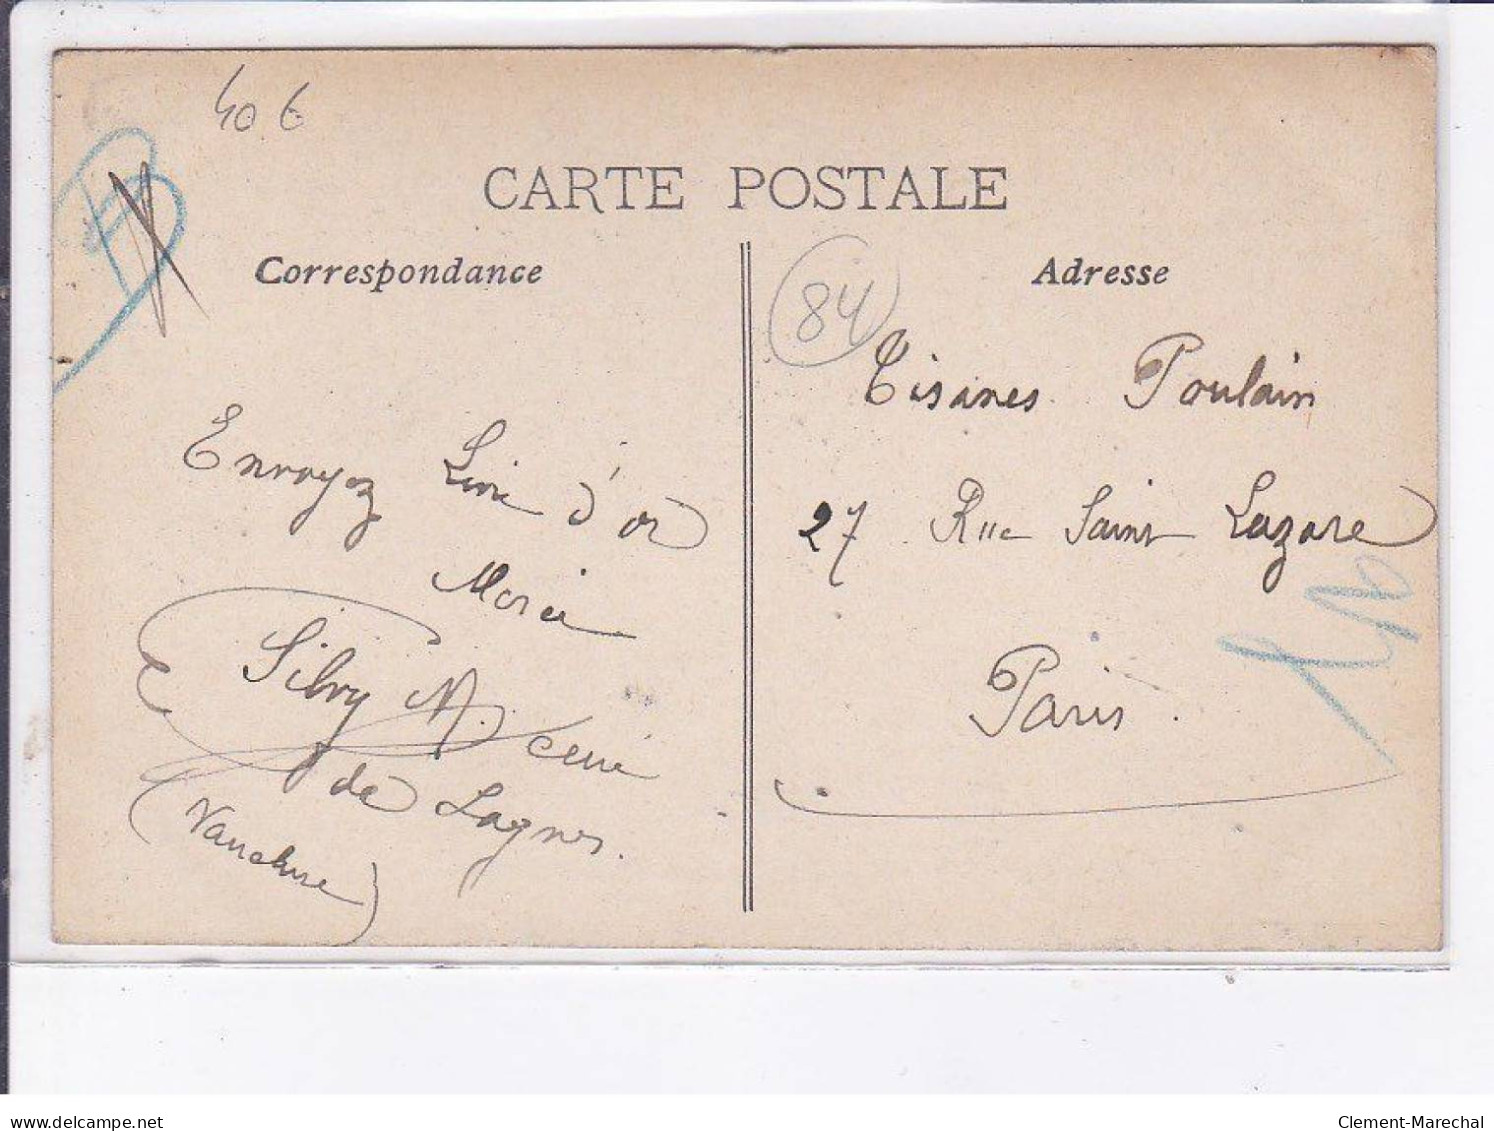 40 €
CARTE POSTALE
Correspondance
Envoyez Livre d'or
Merci
Silvy M.
de Lagnes.
(Vaucluse)
84
Adresse
Tisanes Poulain
27 Rue Saint Lazare
Paris.
www.delcampe.net
Clement-Marechal